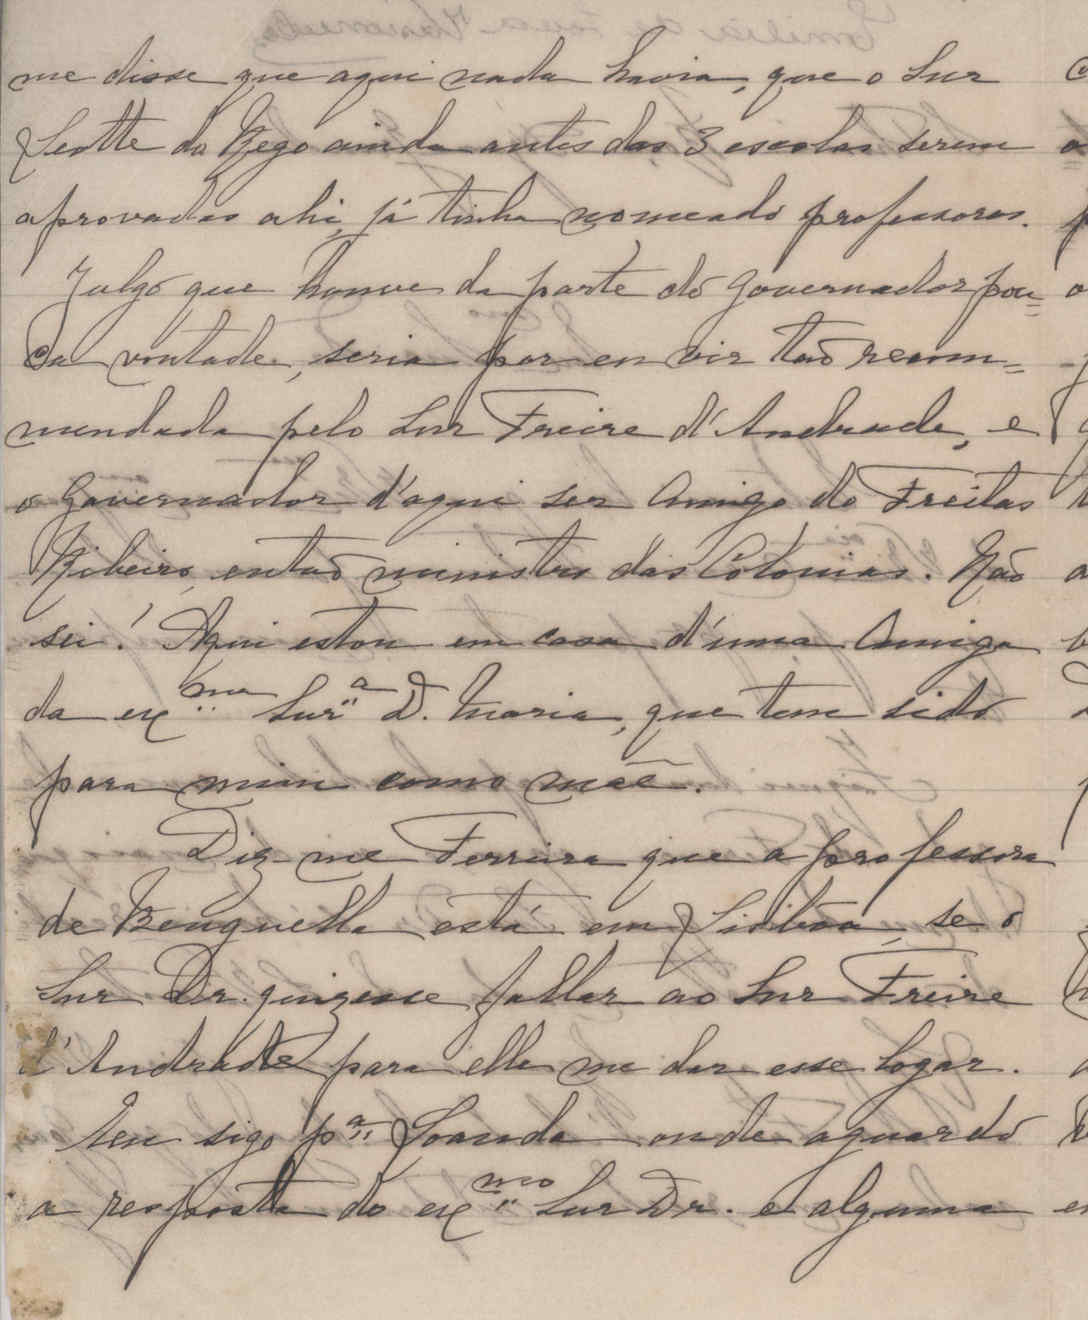 me disse que aqui nada havia, que o Snr
Leotte do Rego ainda antes das 3 escolas serem
aprovadas ahi, já tinha nomeado professoras.
Julgo que houve da parte do Governador pou=
ca vontade, seria por eu vir tão recom=
mendada pelo Snr Freire d'Andrade, e
o Governador d'aqui ser Amigo do Freitas
Ribeiro, então ministro das Colonias. Não
sei! Aqui estou em casa d'uma Amiga
da exma Snra D. Maria, que tem sido
para mim como mãe.
Diz-me Ferreira que a professora
de Benguella está em Lisboa, se o
Snr Dr. quizesse fallar ao Snr Freire
d'Andrade para elle me dar esse logar.
Eu sigo pa Loanda onde aguardo
a resposta do exmo Snr Dr. e alguma